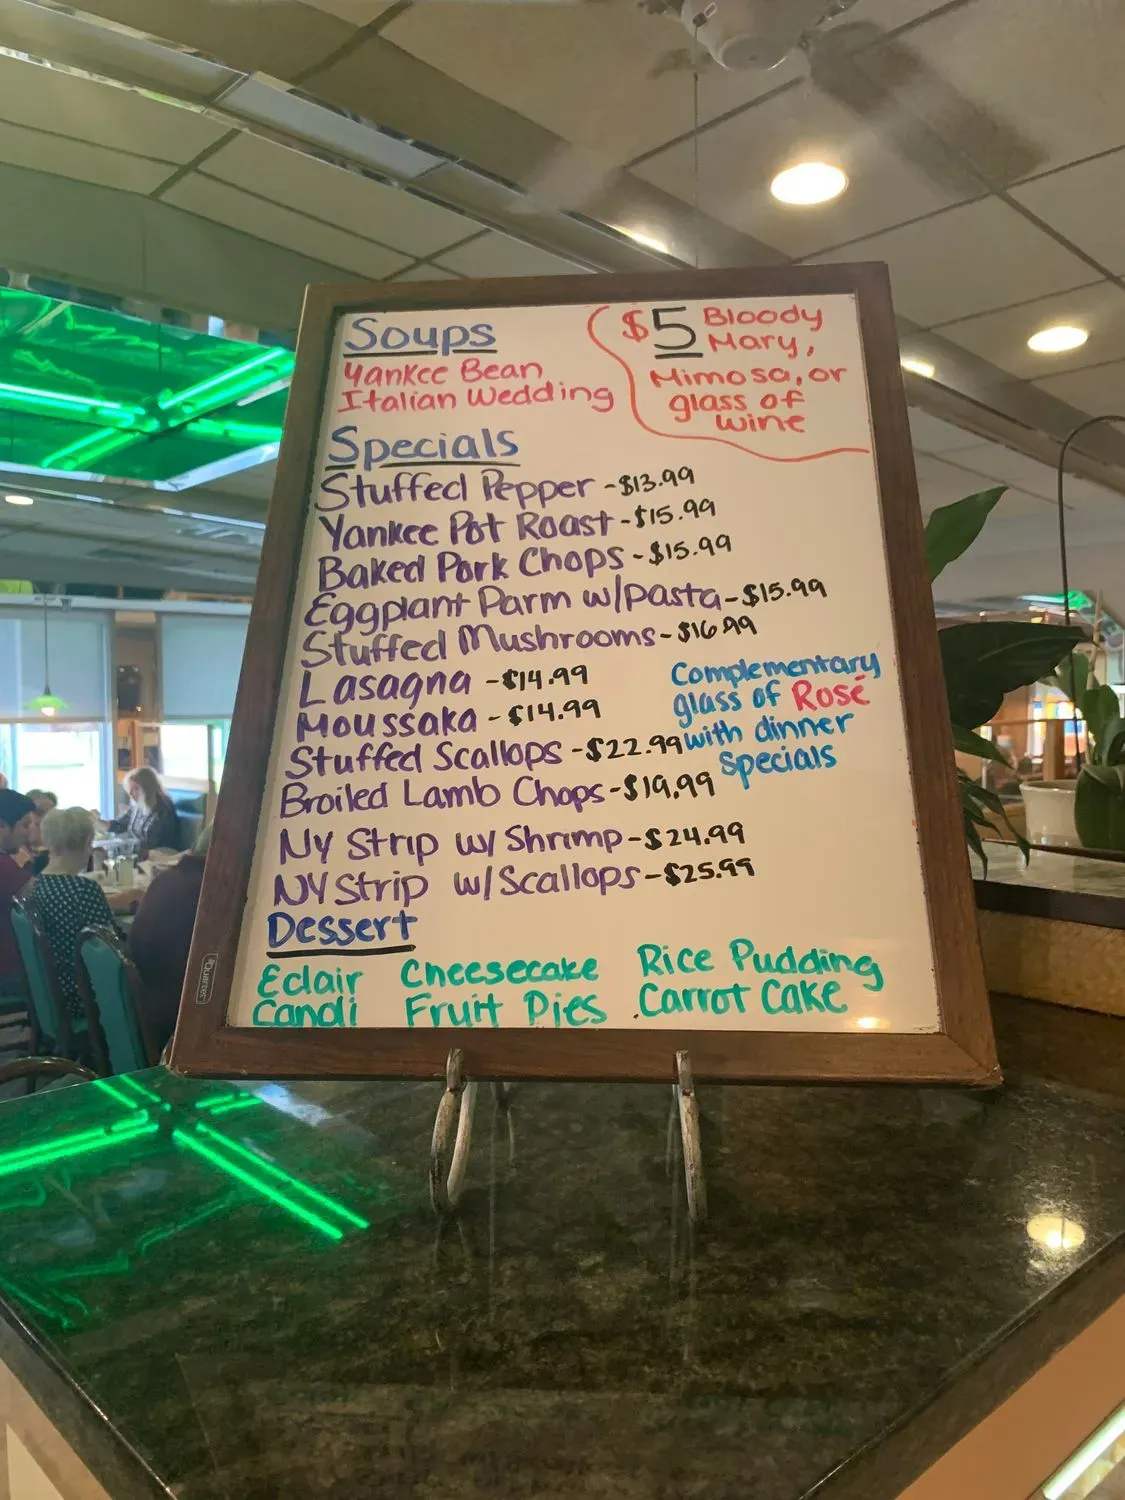 Soups
Yankee Bean
Italian Wedding
$5 Bloody
Mary,
Mimosa, or
glass of
wine
Specials
Stuffed Pepper - $13.99
Yankee Pot Roast - $15.99
Baked Pork Chops - $15.99
Eggplant Parm w/pasta - $15.99
Stuffed Mushrooms - $16.99
Lasagna - $14.99
Moussaka - $14.99
Stuffed Scallops - $22.99
Broiled Lamb Chops - $19.99
Complementary
glass of Rosé
with dinner
Specials
NY Strip w/ Shrimp - $24.99
NY Strip w/Scallops - $25.99
Dessert
Eclair Cheesecake Rice Pudding
Canoli Fruit Pies Carrot Cake
Quartet